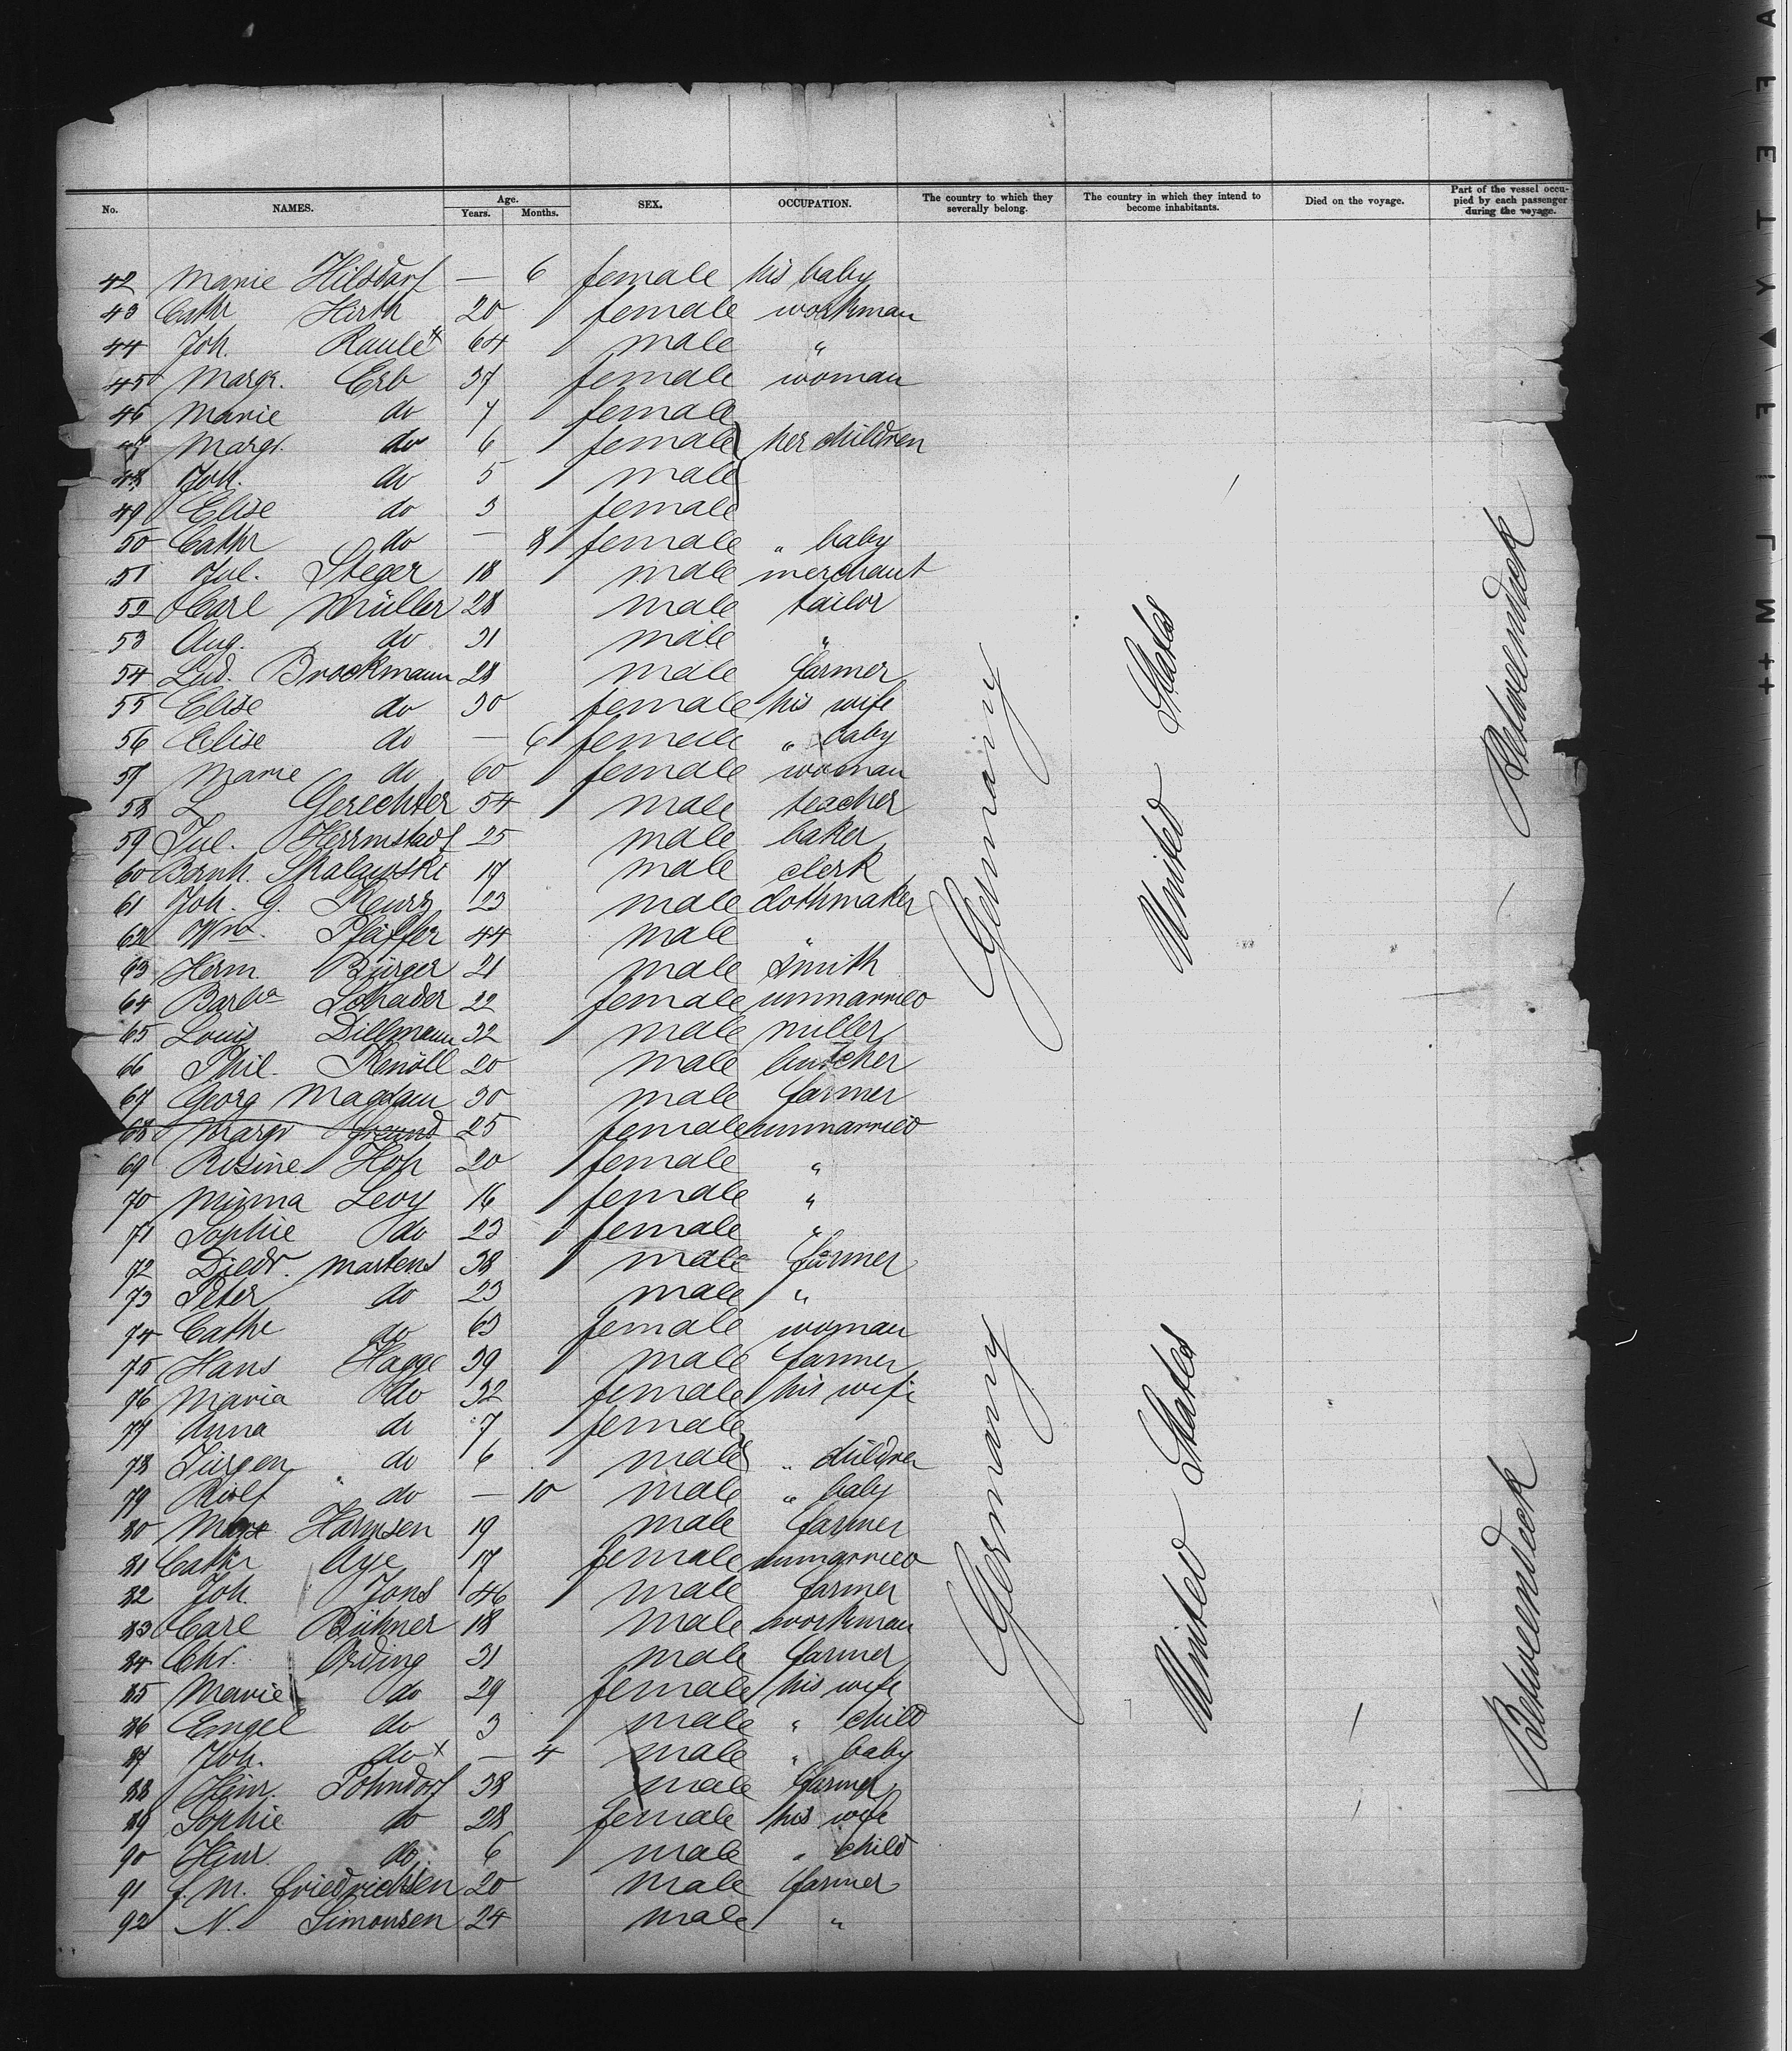 No. NAMES. Age. Years. Months. SEX. OCCUPATION. The country to which they severally belong. The country in which they intend to become inhabitants. Died on the voyage. Part of the vessel occupied by each passenger during the voyage.
42 Marie Hilsdorf — 6 female his baby
43 Cathr Hirth 20 female workman
44 Joh. 64 male "
45 Margr. Erb 37 female woman
46 Marie do 7 female
47 Margr. do 6 female her children
48 Joh. do 5 male
49 Elise do 3 female
50 Cathr do — 8 female " baby
51 Jul. Steger 18 male merchant
52 Carl Müller 28 male tailor
53 Aug. do 31 male "
54 Lud. Brockmann 28 male farmer
55 Elise do 30 female his wife
56 Elise do — 6 female " baby
57 Marie do 60 female woman
58 L Gerechter 54 male teacher
59 Jul. Herrnstadt 25 male baker
60 Bernh. 17 male clerk
61 Joh. G. 23 male clothmaker
62 Wm. Pfeiffer 44 male "
63 Herm Bürger 21 male smith
64 Barba Schader 22 female unmarried
65 Louis Dillmann 32 male miller
66 Phil. Knöll 20 male butcher
67 Georg 30 male farmer
68 Margr Freund 25 female unmarried
69 Rosine 20 female "
70 Minna Levy 16 female "
71 Sophie do 23 female "
72 Diedr. Martens 38 male farmer
73 Peter do 23 male "
74 Cathr do 63 female woman
75 Hans Hagge 39 male farmer
76 Maria do 32 female his wife
77 Anna do 7 female
78 Jürgen do 6 male " children
79 Rolf do — 10 male " baby
80 Max Harmsen 19 male farmer
81 Cathr Aye 17 female unmarried
82 Joh. Jons 46 male farmer
83 Carl Bühner 18 male workman
84 Chr. Ording 31 male farmer
85 Marie do 29 female his wife
86 Engel do 3 male " child
87 Joh. do x — 4 male " baby
88 Heinr. Pohndorf 38 male farmer
89 Sophie do 28 female his wife
90 Heinr. do 6 male " child
91 J. M. Friedrichsen 20 male farmer
92 N. Simonsen 24 male "
Germany
United States
Betweendeck
Germany
United States
Betweendeck